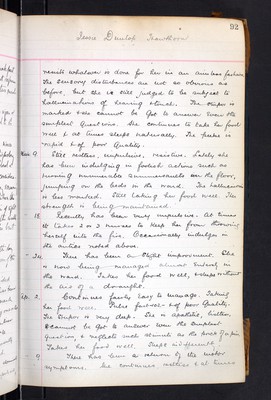 92
Jessie Dunlop
resists whatever is done for her in an aimless fashion
The sensory disturbances are not as obvious as
before, but she is still judged to be subject to
hallucinations of hearing & touch. The stupor is
marked & she cannot be got to answer even the
simplest questions. She continues to take her food
well & at times sleeps naturally. The pulse is
rapid & of poor quality.
9. Still restless, impulsive, resistive. Lately she
has been indulging in foolish actions such as
turning innumerable summersaults on the floor,
jumping on the beds in the ward. The hallucinosis
is less marked. Still taking her food well. The
strength is being maintained.
- 18. Recently has been very impulsive. At times
it takes 2 or 3 nurses to keep her from throwing
herself into the fire. Occasionally indulges in
the antics noted above.
There has been a slight improvement. She
is now being managed almost entirely in
the ward. Takes her food well, & sleeps without
the aid of a draught.
2. Continues fairly easy to manage. Taking
her food well. Pulse fast & of poor quality.
The stupor is very deep. She is apathetic, listless,
& cannot be got to answer even the simplest
question & neglects such stimuli as the prick of a pin
Takes her food well. Sleeps
- 9. There has been a return of the motor
symptoms. She continues restless & at times